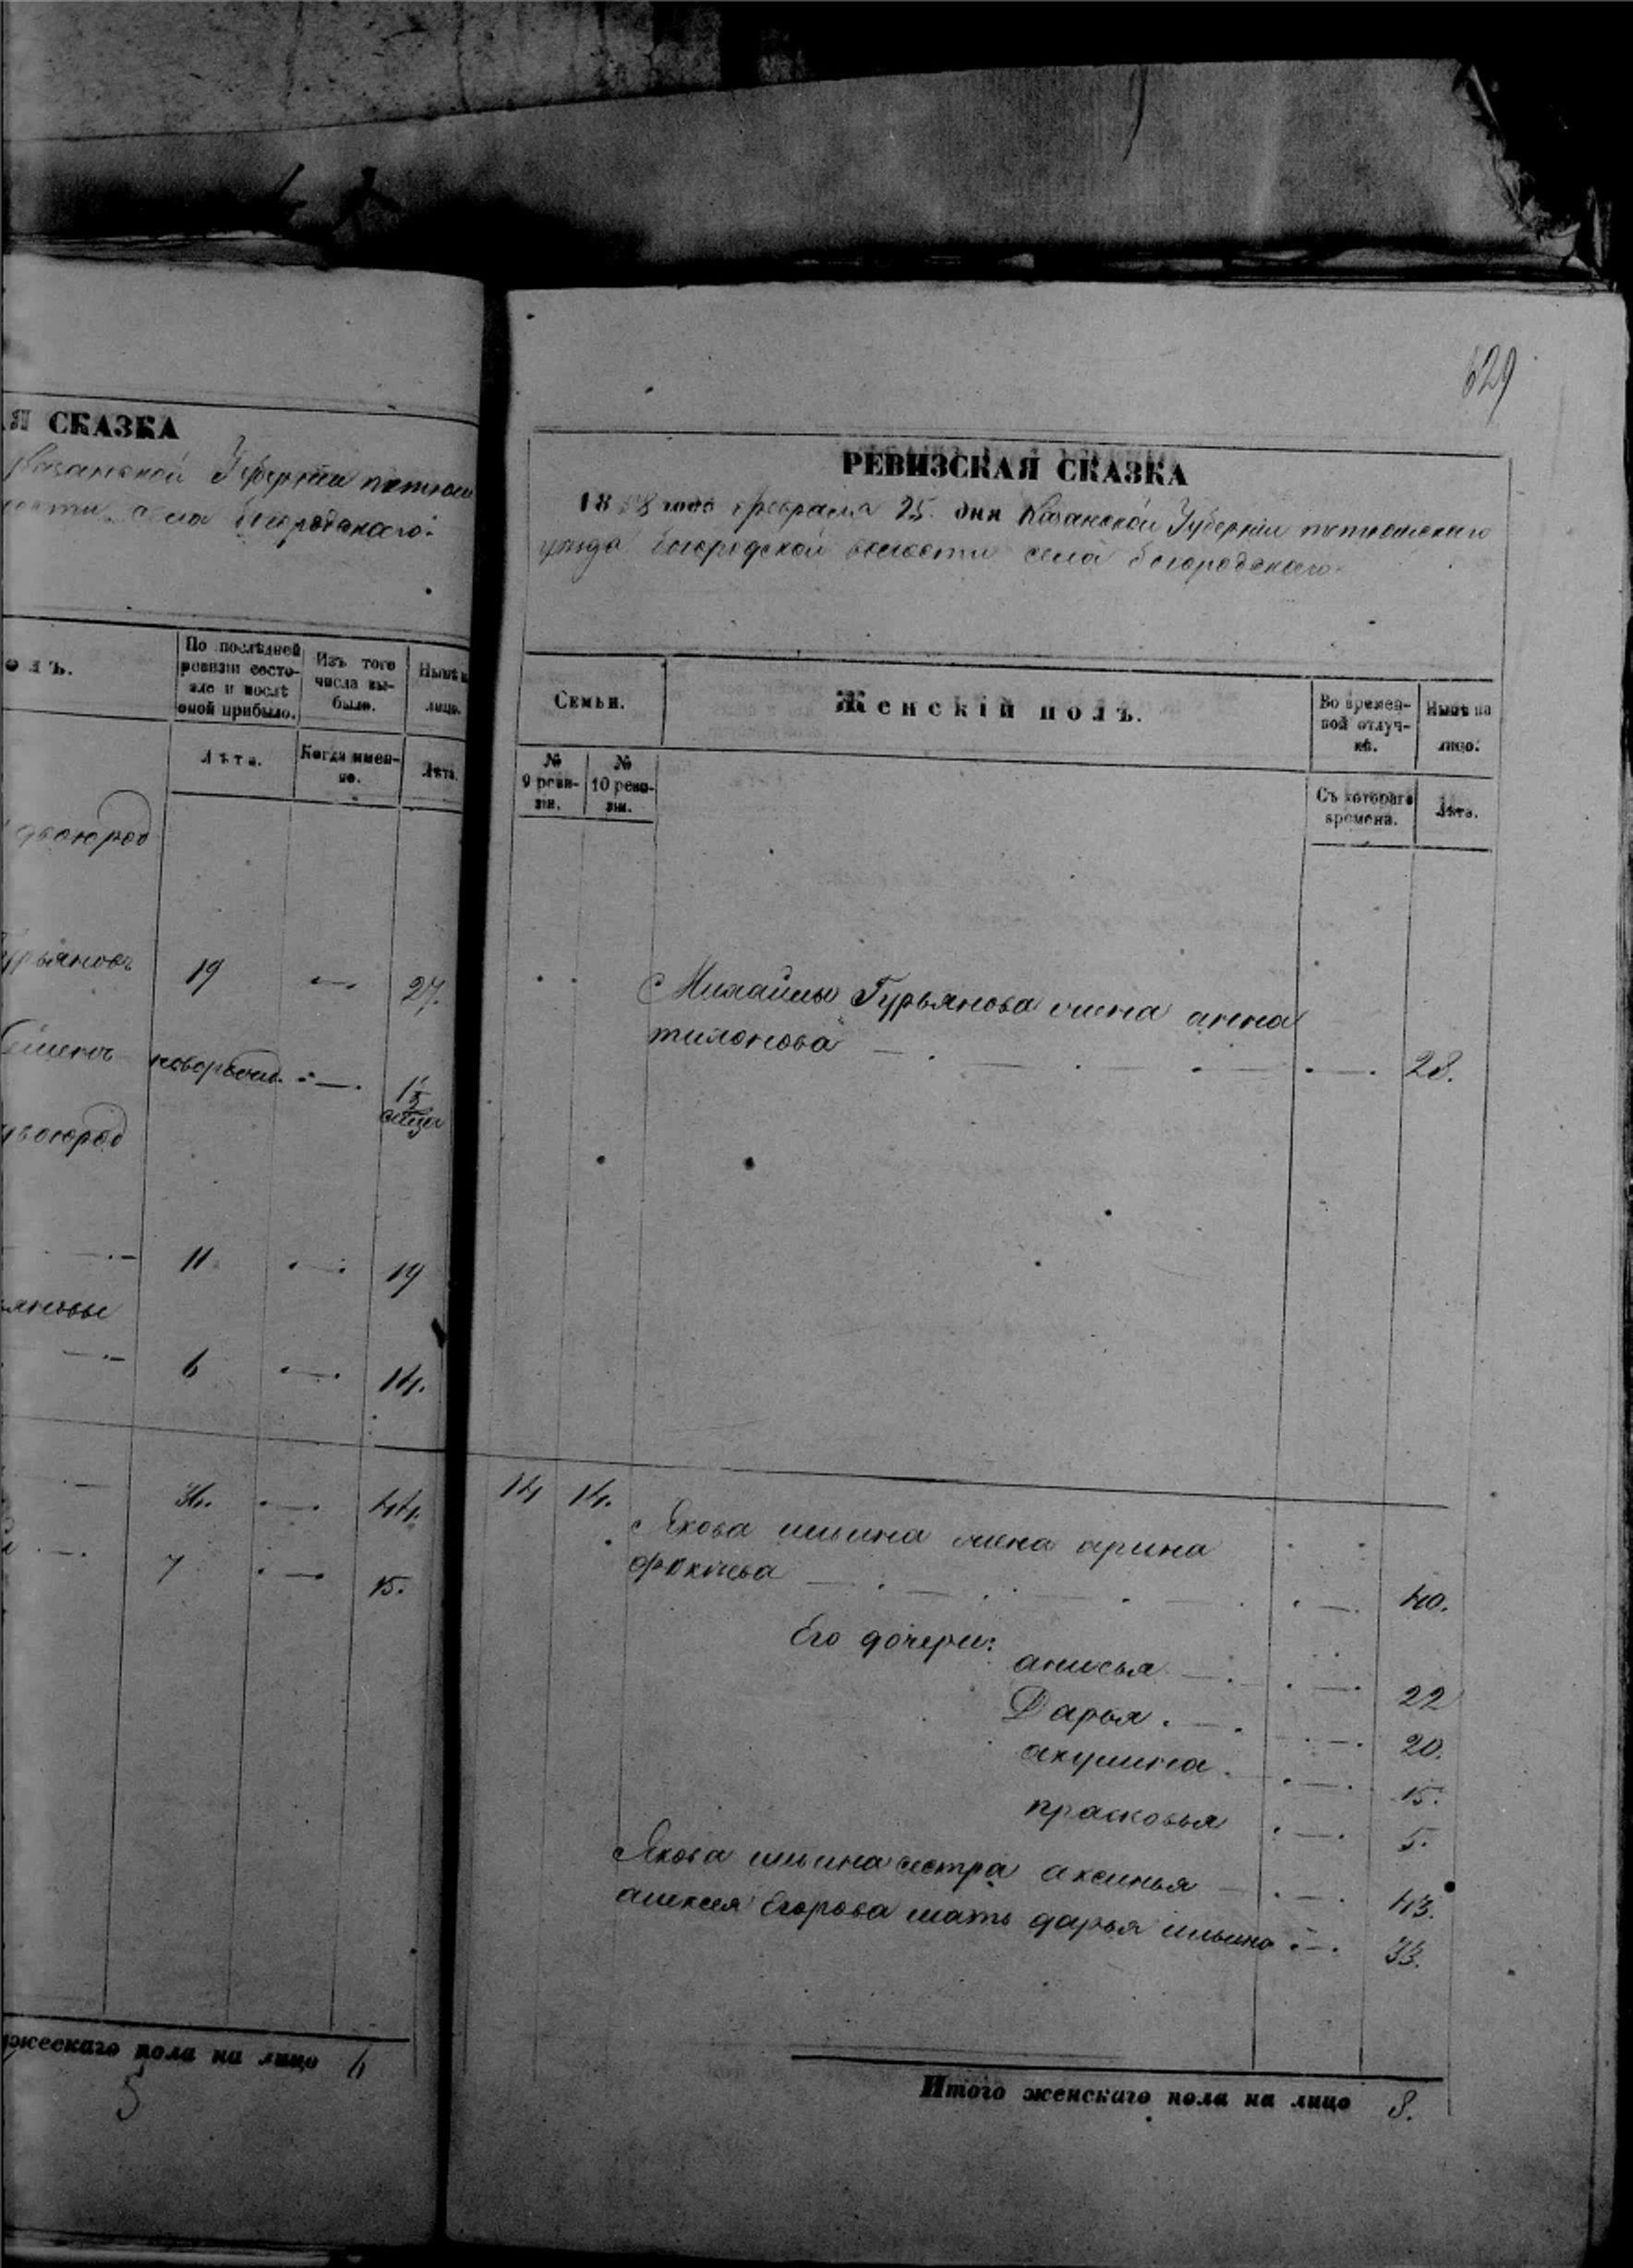 Я СКАЗКА
Казанской Губернiи
села богородскаго:
олъ.
По послѣдней ревизiи состояло и послѣ оной прибыло.
Изъ того числа выбыло.
Нынѣ н лицо.
Лѣта.
Когда именно.
Лѣта.
двоюрод
урьяновъ 19 27.
новорожд. 1½
двоюрод
11 19
ьяновы
6 14.
36. 44.
7 15.
жескаго пола на лицо 6
5
629
РЕВИЗСКАЯ СКАЗКА
1858 года февраля 25. дня Казанской Губернiи
уѣзда богородской волости села богородскаго.
Семьи.
Женскiй полъ.
Во временной отлучкѣ.
Нынѣ на лицо.
№ 9 ревизiи.
№ 10 ревизiи.
Съ котораго времени.
Лѣта.
Михайлы Гурьянова жена анна
28.
14 14.
Якова ильина жена арина
40.
Его дочери:
анисья 22
Дарья 20.
акулина 15.
прасковья 5.
Якова ильина сестра аксинья 43.
алексея Егорова мать дарья ильина 33.
Итого женскаго пола на лицо 8.